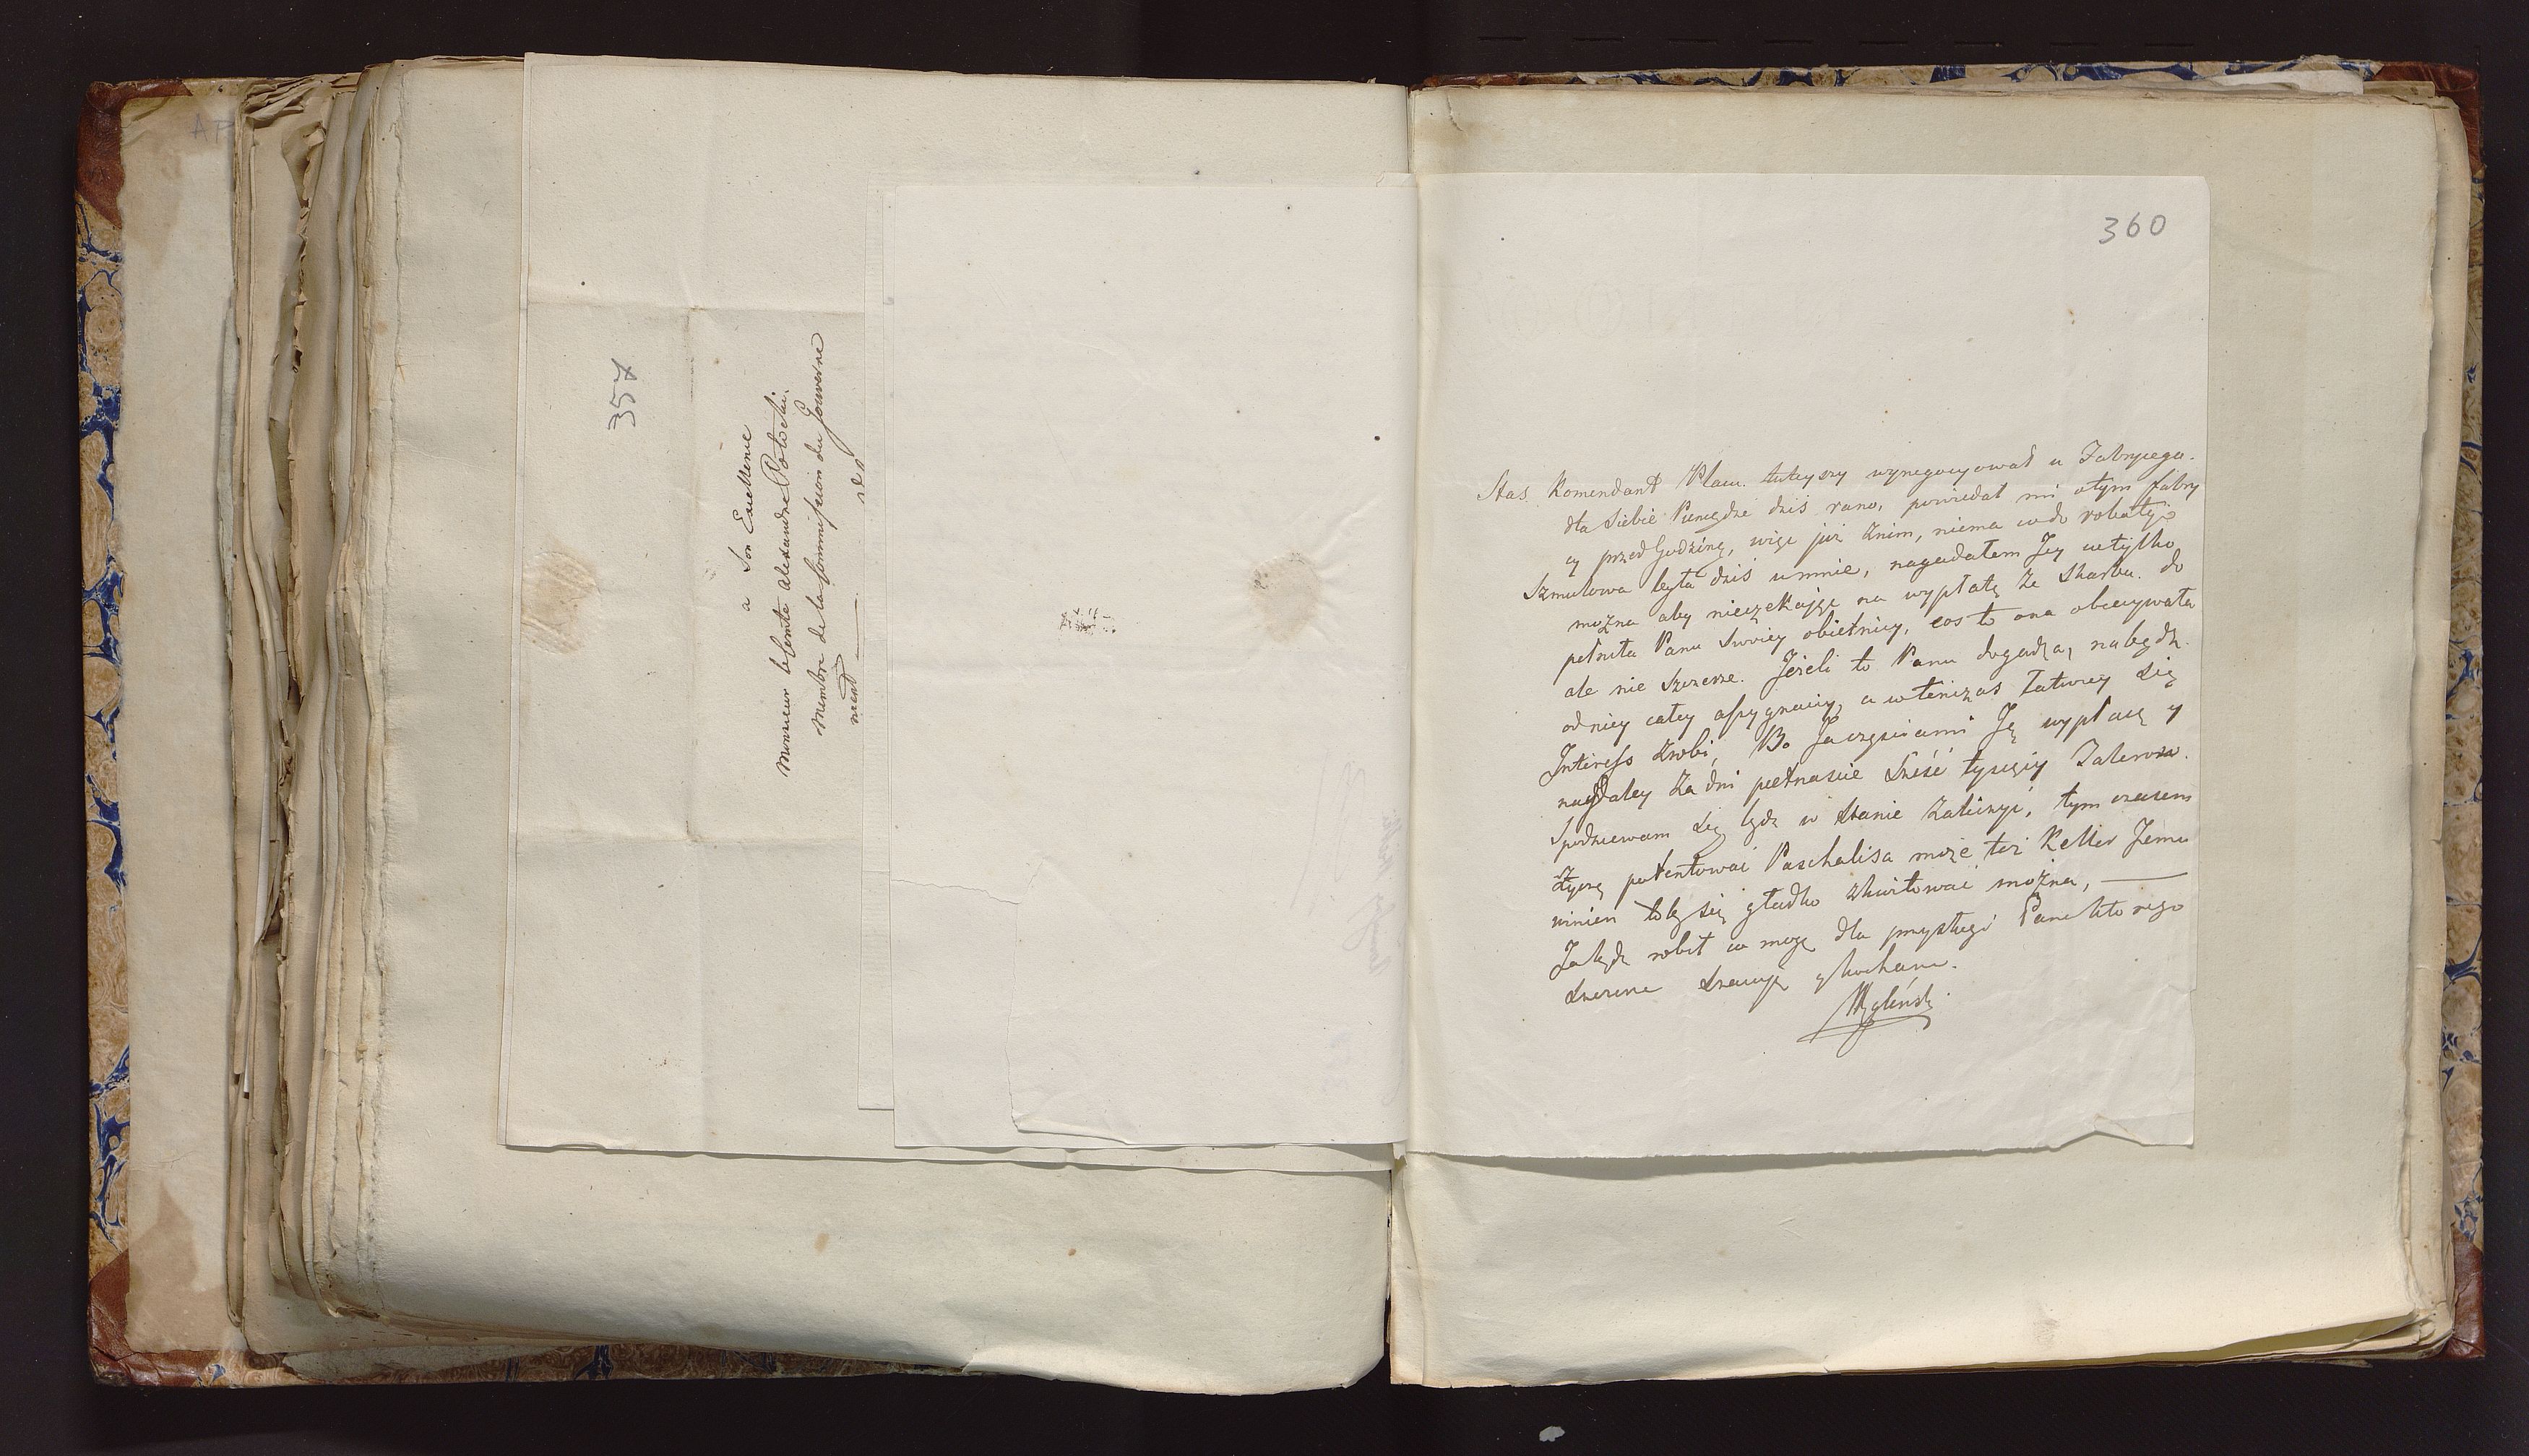 357
a Son Excellence
Monsieur le Comte Alexandre Potocki.
Membre de la Commission du Gouverne
ment
360
Stas Komendant Placu tuteyszy wynegocyował u Fabryciego
dla siebie Pieniądze dziś rano, powiedał mi o tym Fabry
cy przed Godziną, więc już znim, niema co do roboty
Szmulowa była dziś u mnie, nagadałem Jey
można aby nieczekając na wypłatę ze Skarbu. do
pełniła Panu Swoiey obietnicy, cos to ona obiecywała
ale nie szczerze. Jeżeli to Panu dogadza, nabędz
odniey całey assygnacyi, a wtenczas łatwiey się
Interess zrobi, Bo Ja częściami Ją wypłacę y
naydaley za dni piętnascie sześć tysięcy Talerow.
Spodziewam się będę w stanie zaliczyć, tym czasem
życzę Paschalisa może też Keller Jemu
winien toby się gładko skwitować można,
Ja będę robił co mogę dla przysługi Pana którego
szczerze szacuję y kocham.
Węgliński